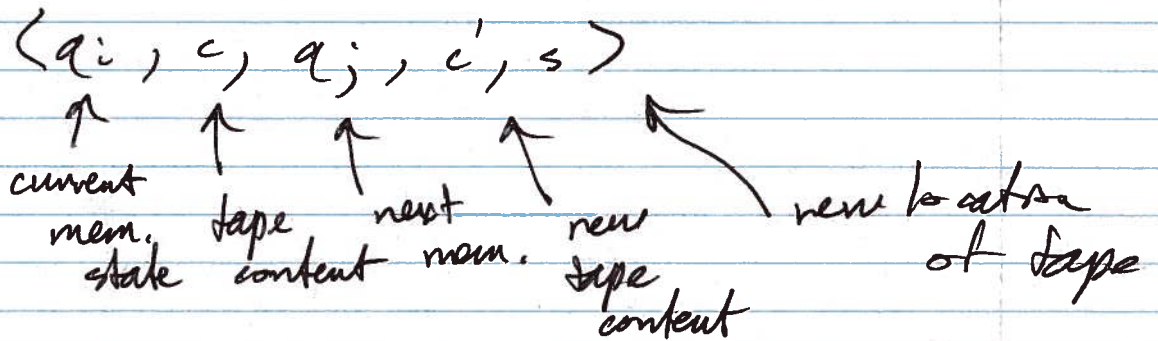 ⟨qi, c, qj, c', s⟩
current mem. state
tape content
next mem.
new tape content
new location of tape